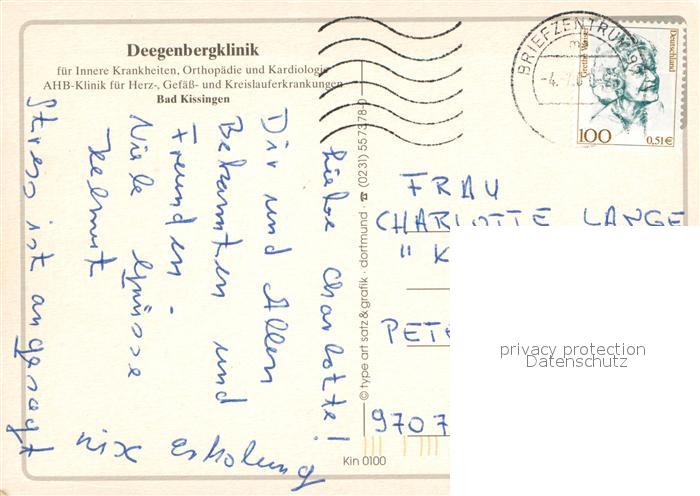 Deegenbergklinik
für Innere Krankheiten, Orthopädie und Kardiologie
AHB-Klinik für Herz-, Gefäß- und Kreislauferkrankungen
Bad Kissingen
Liebe Charlotte!
Dir und Allen
Bekannten und
Freunden.
Viele Grüsse
Helmut
Stress ist angesagt
nix erholung
© type art satz & grafik · dortmund · ☎ (0231) 557378-0
Kin 0100
BRIEFZENTRUM 97
Grethe Weiser
Deutschland
100
0,51€
FRAU
CHARLOTTE LANGE
" K
PETE
9707
privacy protection
Datenschutz